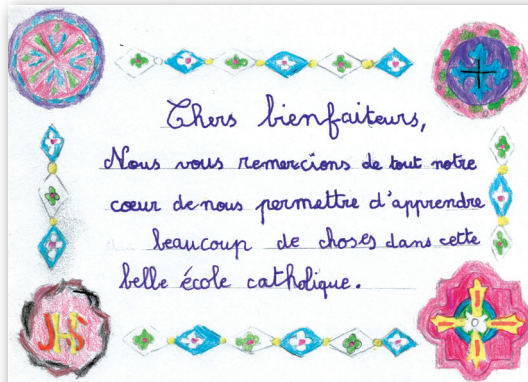 Chers bienfaiteurs,
Nous vous remercions de tout notre
cœur de nous permettre d'apprendre
beaucoup de choses dans cette
belle école catholique.
JHS